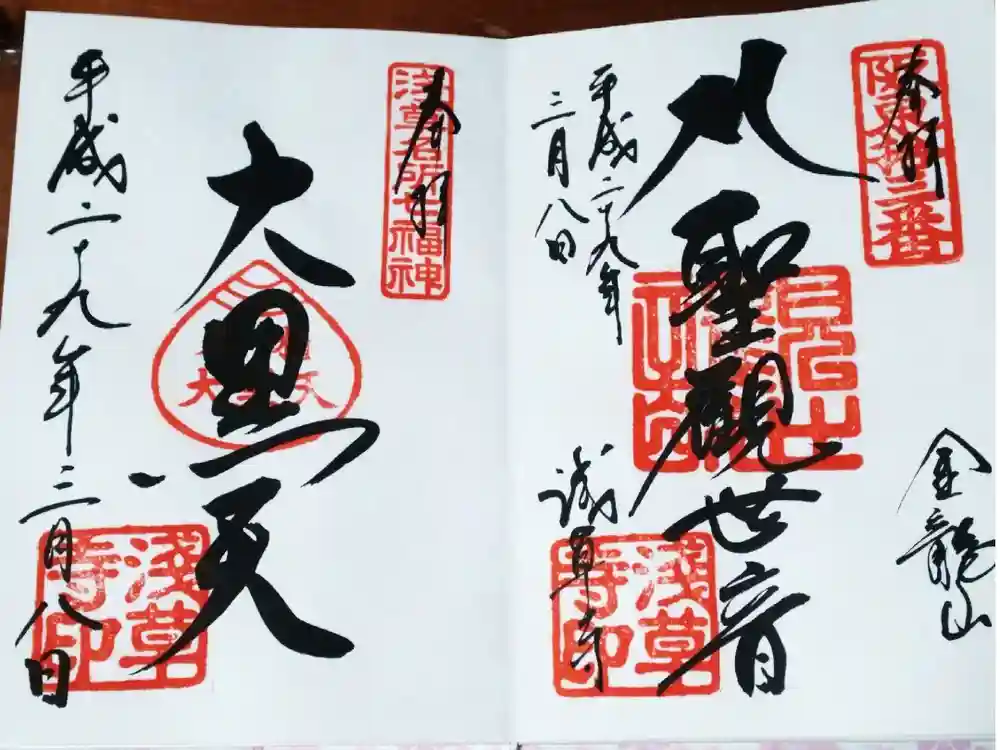 奉拝
阪東拾三番
金龍山
八聖觀世音
平成二十九年
三月八日
淺草寺
淺草寺印
奉拝
淺草名所七福神
大黒天
平成二十九年三月八日
淺草寺印